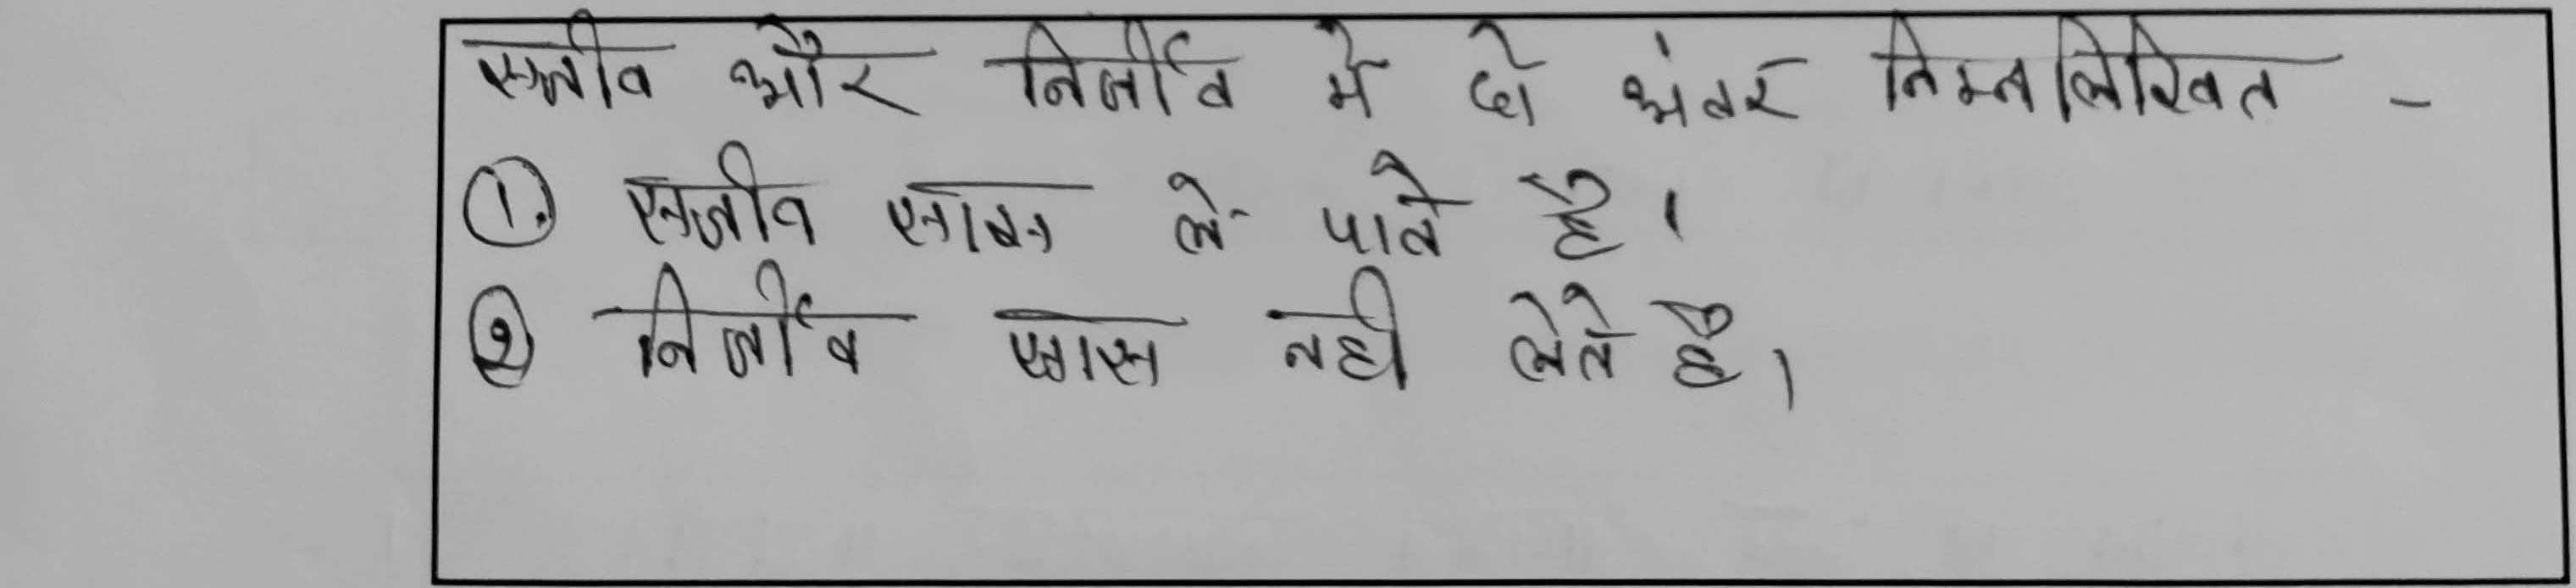 सजीव और निर्जीव में दो अंतर निम्नलिखित -
① सजीव सास ले पाते है।
② निर्जीव सास नही लेते है।